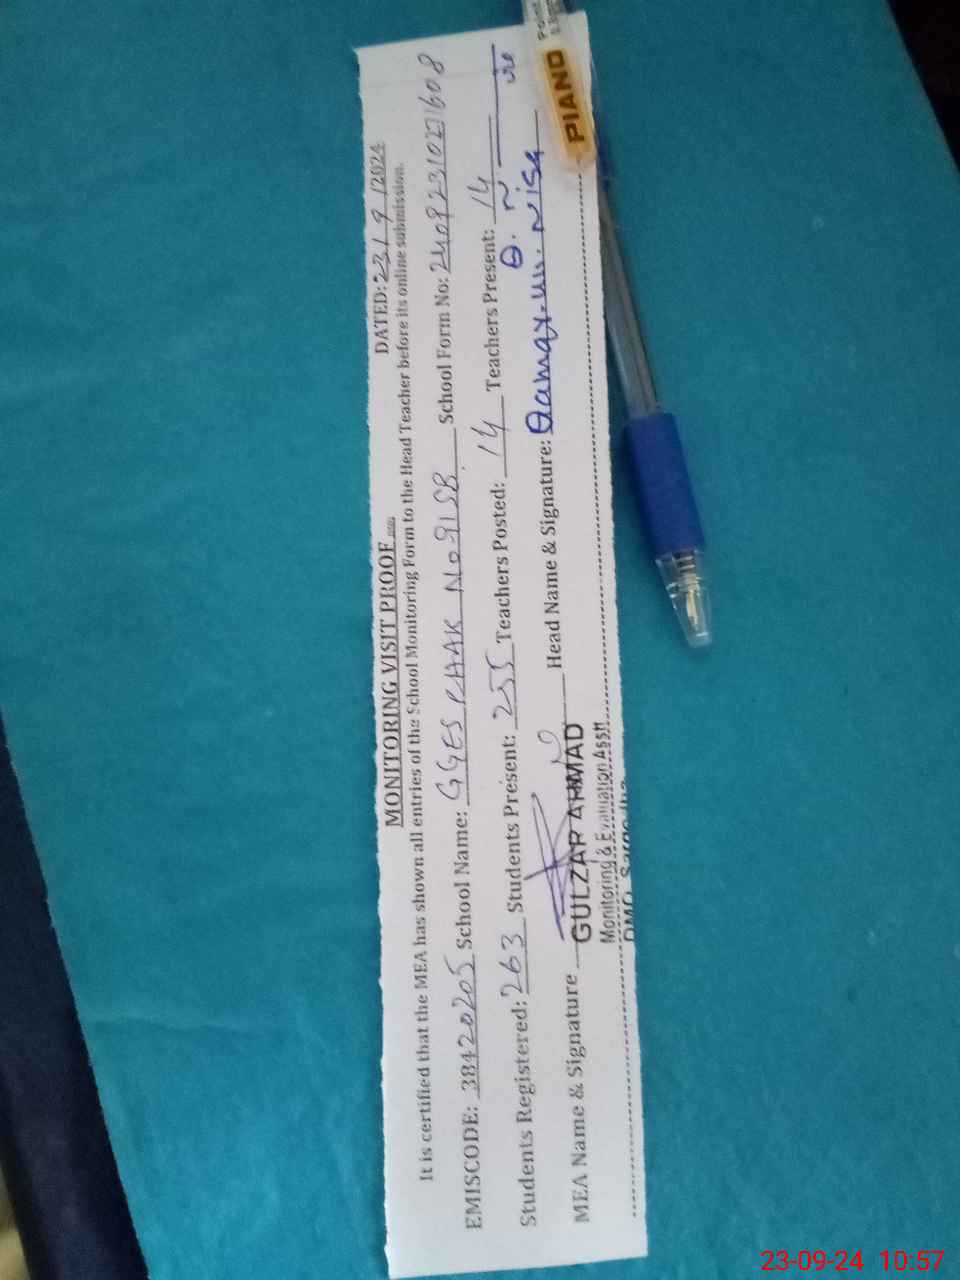 MONITORING VISIT PROOF
DATED: 23/9/2024
It is certified that the MEA has shown all entries of the School Monitoring Form to the Head Teacher before its online submission.
EMISCODE: 38420205 School Name: GGES CHAK No 91SB School Form No:
Students Registered: 263 Students Present: 255 Teachers Posted: 14 Teachers Present: 14
Q. N
MEA Name & Signature GULZAR AHMAD Head Name & Signature: Qamar-un-Nisa
Monitoring & Evaluation Asstt
DMO, Sargodha
PIANO
Point
23-09-24 10:57